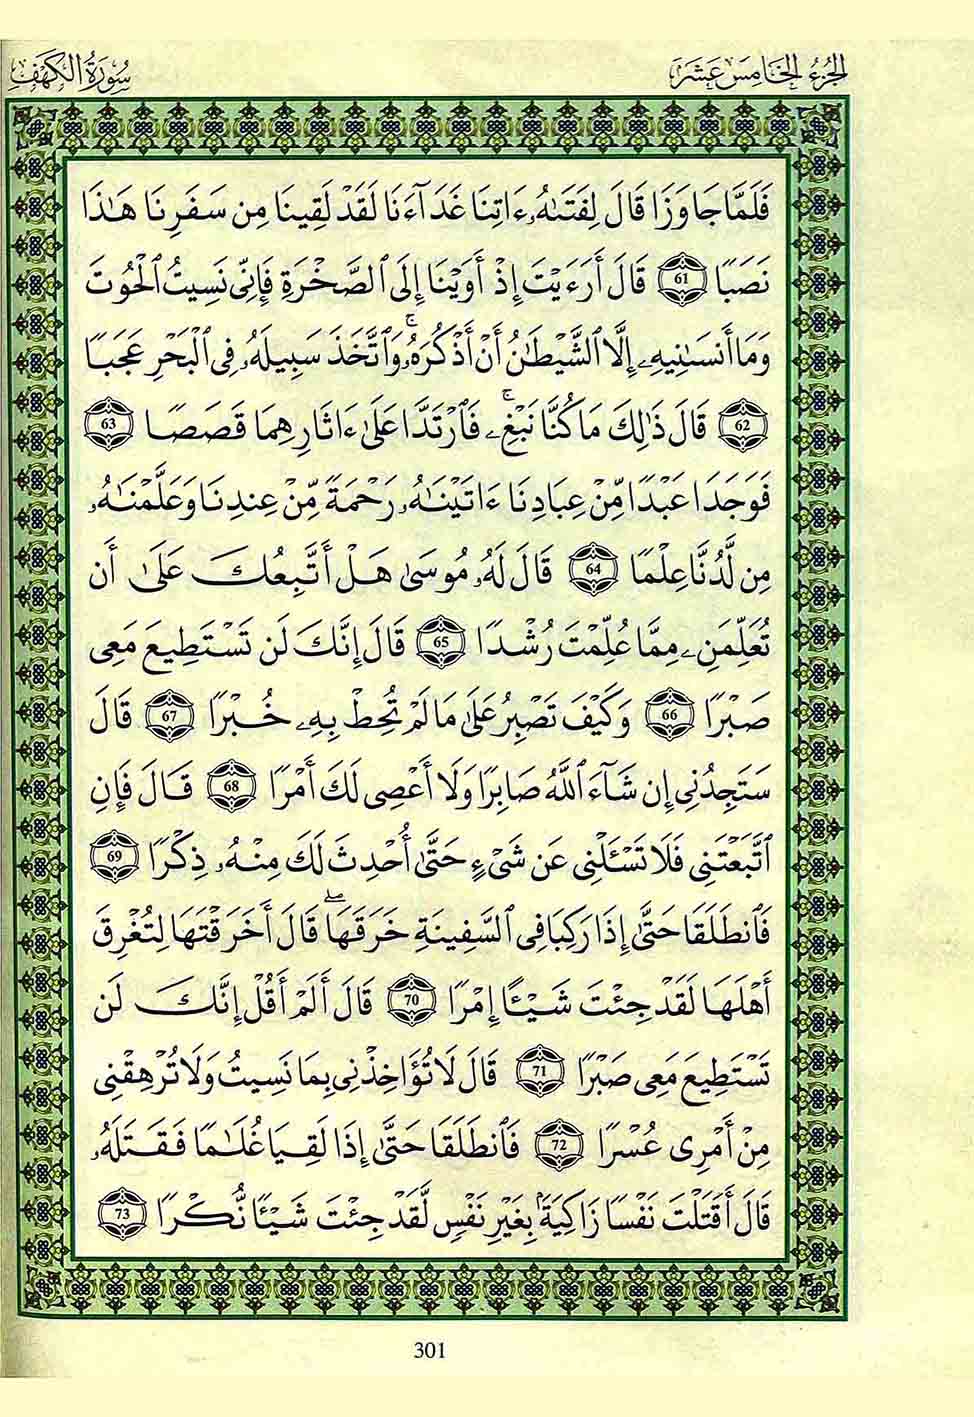 الجزء الخامس عشر
سورة الكهف
فَلَمَّا جَاوَزَا قَالَ لِفَتَىٰهُ ءَاتِنَا غَدَآءَنَا لَقَدْ لَقِينَا مِن سَفَرِنَا هَٰذَا
نَصَبًا 61 قَالَ أَرَءَيْتَ إِذْ أَوَيْنَا إِلَى ٱلصَّخْرَةِ فَإِنِّى نَسِيتُ ٱلْحُوتَ
وَمَا أَنسَىٰنِيهِۦ إِلَّا ٱلشَّيْطَٰنُ أَنْ أَذْكُرَهُۥۚ وَٱتَّخَذَ سَبِيلَهُۥ فِى ٱلْبَحْرِ عَجَبًا
62 قَالَ ذَٰلِكَ مَا كُنَّا نَبْغِۦۚ فَٱرْتَدَّا عَلَىٰ ءَاثَارِهِمَا قَصَصًا 63
فَوَجَدَا عَبْدًا مِّنْ عِبَادِنَا ءَاتَيْنَٰهُ رَحْمَةً مِّنْ عِندِنَا وَعَلَّمْنَٰهُ
مِن لَّدُنَّا عِلْمًا 64 قَالَ لَهُۥ مُوسَىٰ هَلْ أَتَّبِعُكَ عَلَىٰ أَن
تُعَلِّمَنِۦ مِمَّا عُلِّمْتَ رُشْدًا 65 قَالَ إِنَّكَ لَن تَسْتَطِيعَ مَعِى
صَبْرًا 66 وَكَيْفَ تَصْبِرُ عَلَىٰ مَا لَمْ تُحِطْ بِهِۦ خُبْرًا 67 قَالَ
سَتَجِدُنِى إِن شَآءَ ٱللَّهُ صَابِرًا وَلَا أَعْصِى لَكَ أَمْرًا 68 قَالَ فَإِنِ
ٱتَّبَعْتَنِى فَلَا تَسْـَٔلْنِى عَن شَىْءٍ حَتَّىٰ أُحْدِثَ لَكَ مِنْهُ ذِكْرًا 69
فَٱنطَلَقَا حَتَّىٰ إِذَا رَكِبَا فِى ٱلسَّفِينَةِ خَرَقَهَاۖ قَالَ أَخَرَقْتَهَا لِتُغْرِقَ
أَهْلَهَا لَقَدْ جِئْتَ شَيْـًٔا إِمْرًا 70 قَالَ أَلَمْ أَقُلْ إِنَّكَ لَن
تَسْتَطِيعَ مَعِى صَبْرًا 71 قَالَ لَا تُؤَاخِذْنِى بِمَا نَسِيتُ وَلَا تُرْهِقْنِى
مِنْ أَمْرِى عُسْرًا 72 فَٱنطَلَقَا حَتَّىٰ إِذَا لَقِيَا غُلَٰمًا فَقَتَلَهُۥ
قَالَ أَقَتَلْتَ نَفْسًا زَاكِيَةًۢ بِغَيْرِ نَفْسٍ لَّقَدْ جِئْتَ شَيْـًٔا نُّكْرًا 73
301